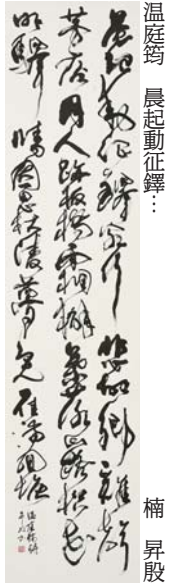 温庭筠　晨起動征鐸…　楠　昇殷
晨起動征鐸客行悲故鄉雞聲
茅店月人跡板橋霜槲葉落山路枳花
明驛牆因思杜陵夢鳧雁滿回塘
温庭筠詩